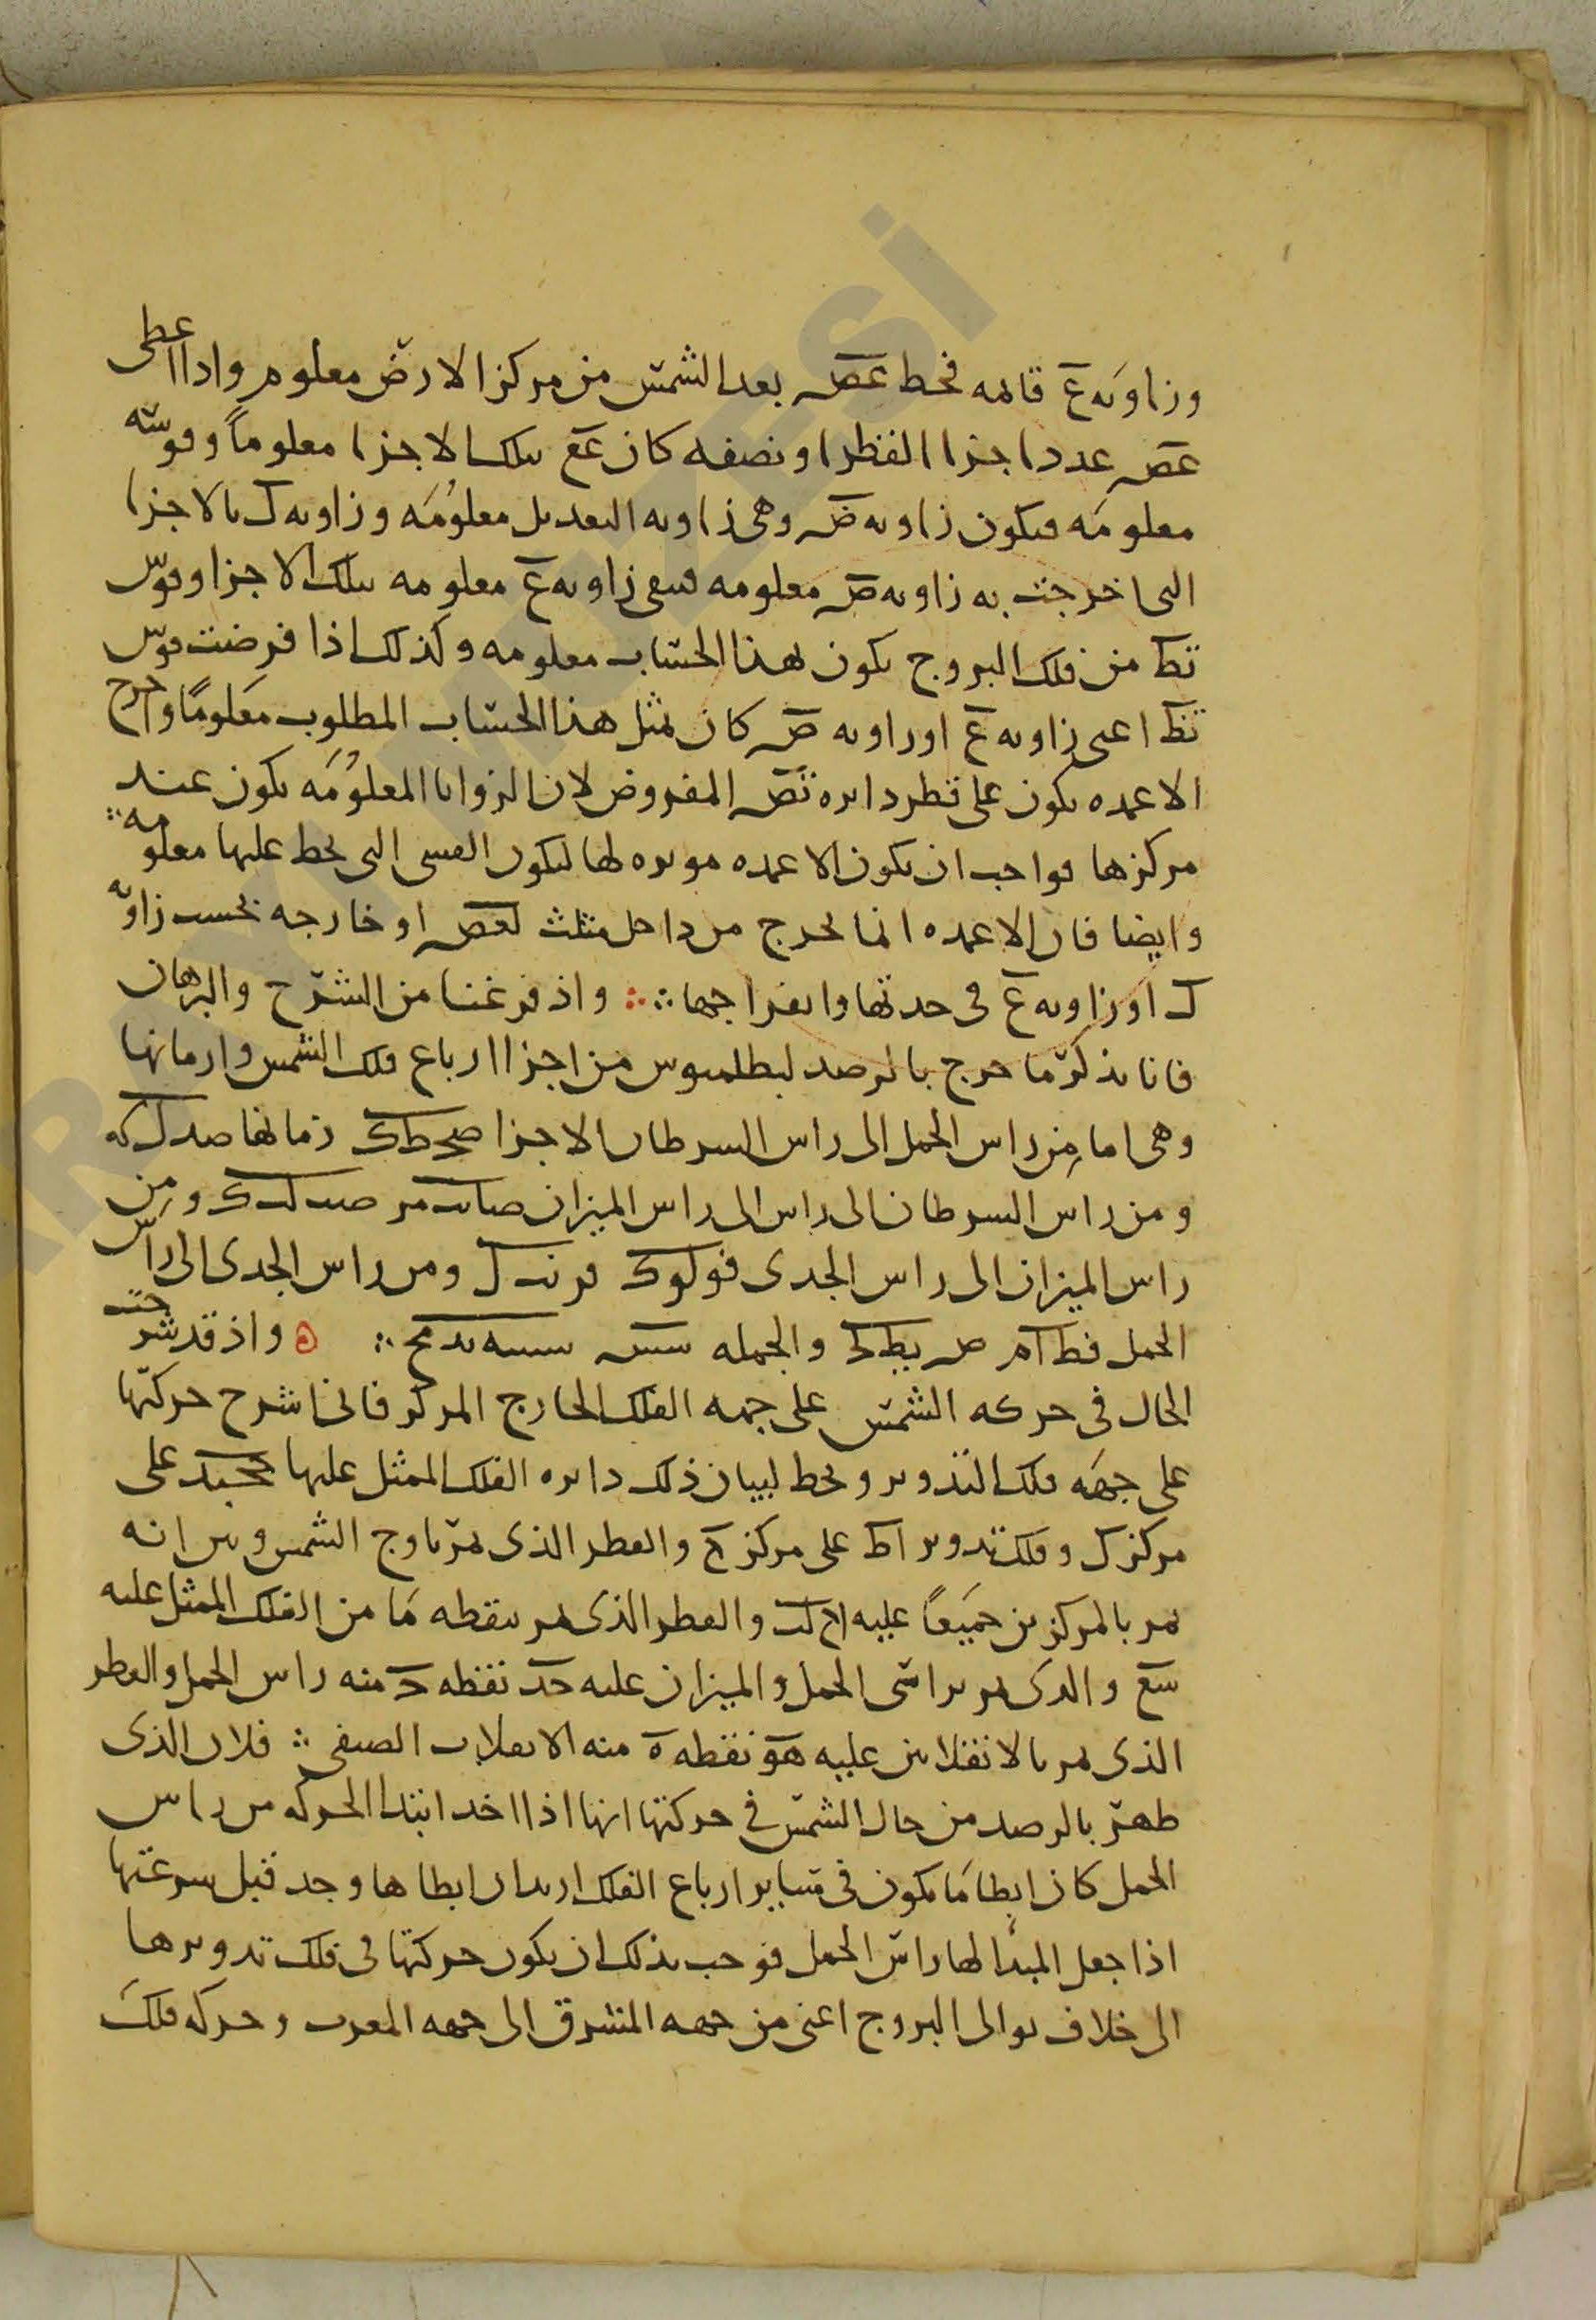 وزاويه ع قائمه فخط عص بعد الشمس من مركز الارض معلوم واذا اعطى
عص عدد اجزا القطر او نصفه كان عع بتلك الاجزا معلوماً وقوسه
معلومه فيكون زاويه ص وهى زاويه التعديل معلومَه وزاويه ل بالاجزا
التى اخرجت به زاويه ص معلومه فتبقى زاويه ع معلومه بتلك الاجزا وقوس
تط من فلك البروج يكون بهذا الحساب معلومه وكذلك اذا فرضت قوس
تط اعنى زاويه ع او زاويه ص كان بمثل هذا الحساب المطلوب معلومًا واخرج
الاعمده يكون على قطر دايره تص المفروض لان الزوايا المعلومَه يكون عند
مركزها فواجب ان يكون الاعمده موتره لها ليكون القسى التى يحط عليها معلومه
وايضا فان الاعمده انما يخرج من داخل مثلث لعص او خارجه بحسب زاويه
ل او زاويه ع فى حدتها وانفراجها واذ فرغنا من الشرح والبرهان
فانا نذكر ما خرج بالرصد لبطلميوس من اجزا ارباع فلك الشمس وازمانها
وهى اما من راس الحمل الى راس السرطان الاجزا صح ط ك زمانها صد ل كه
ومن راس السرطان الى راس الى راس الميزان ومن
راس الميزان الى راس الجدى ومن راس الجدى الى راس
الحمل والجمله واذ قد شرحت
الحال فى حركه الشمس على جهه الفلك الخارج المركز فانى اشرح حركتها
على جهَه فلك التدوير ونخط لبيان ذلك دايره الفلك الممثل عليها على
مركز ك وفلك تدوير اط على مركز ح والقطر الذى يمر باوج الشمس وبين انه
يمر بالمركزين جميَعًا عليه والقطر الذى يمر بنقطه مَا من الفلك الممثل عليه
سع والذى يمر براسى الحمل والميزان عليه حد نقطه حَ منه راس الحمل والقطر
الذى يمر بالانقلابين عليه هو نقطه ه منه الانقلاب الصيفى فلان الذى
ظهر بالرصد من حال الشمس فى حركتها انها اذا اخذ ابتدا الحركه من راس
الحمل كان ابطا مَا يكون فى ساير ارباع الفلك ابطاها وجد قبل سرعتها
اذا جعل المبدأ لها راس الحمل فوجب بذلك ان يكون حركتها فى فلك تدويرها
الى خلاف توالى البروج اعنى من جهه المشرق الى جهه المغرب وحركه فلك